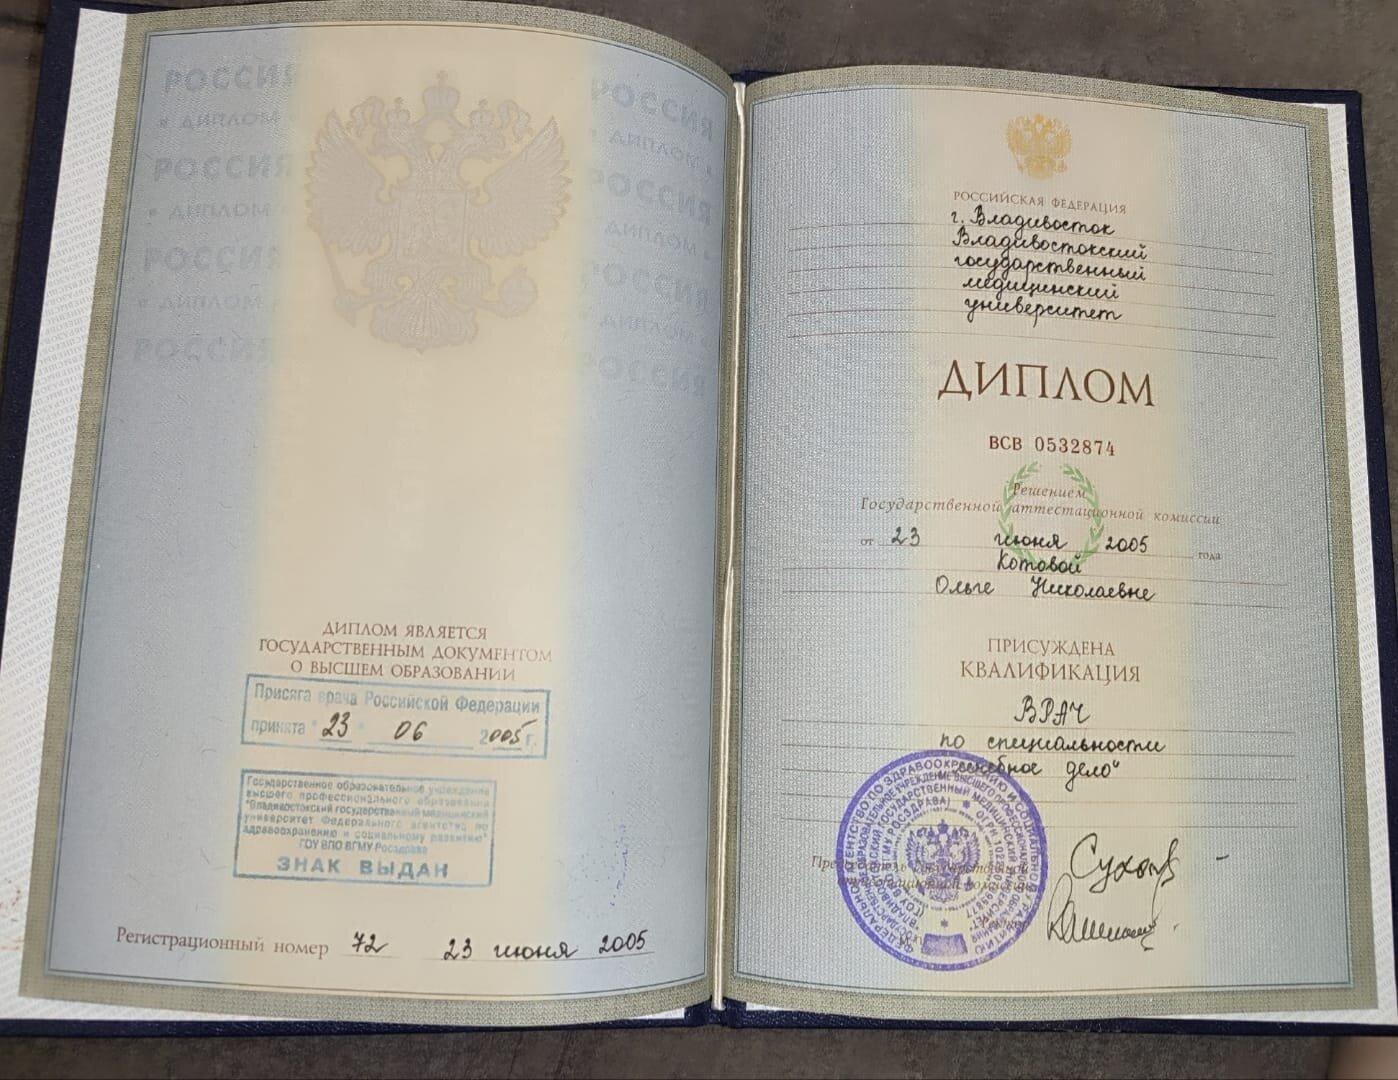 РОССИЯ
• ДИПЛОМ •
РОССИЯ
• ДИПЛОМ
РОССИЯ
• ДИПЛОМ
РОССИЯ
РОССИЯ
• ДИПЛОМ •
РОССИЯ
ДИПЛОМ •
РОССИЯ
• ДИПЛОМ •
РОССИЯ
ДИПЛОМ ЯВЛЯЕТСЯ
ГОСУДАРСТВЕННЫМ ДОКУМЕНТОМ
О ВЫСШЕМ ОБРАЗОВАНИИ
Присяга врача Российской Федерации
принята "23" 06 2005 г.
Государственное образовательное учреждение
высшего профессионального образования
"Владивостокский государственный медицинский
университет Федерального агентства по
здравоохранению и социальному развитию"
ГОУ ВПО ВГМУ Росздрава
ЗНАК ВЫДАН
Регистрационный номер 72 23 июня 2005
РОССИЙСКАЯ ФЕДЕРАЦИЯ
г. Владивосток
Владивостокский
государственный
медицинский
университет
ДИПЛОМ
ВСВ 0532874
Решением
Государственной аттестационной комиссии
от 23 июня 2005 года
Котовой
Ольге Николаевне
ПРИСУЖДЕНА
КВАЛИФИКАЦИЯ
ВРАЧ
по специальности
дело"
Председатель Государственной
аттестационной комиссии